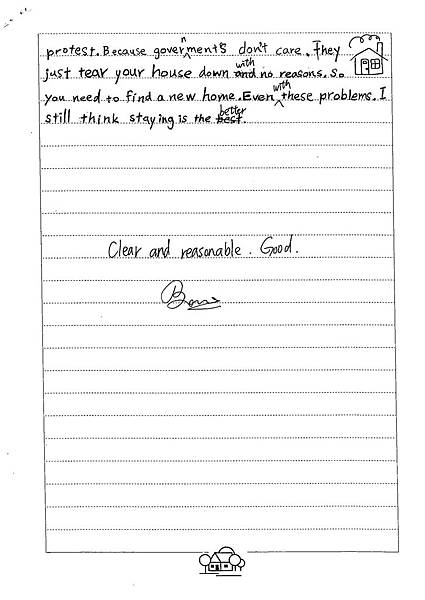 protest. Because goverments don't care. They
n
just tear your house down and no reasons. So
with
you need to find a new home. Even these problems. I
with
still think staying is the best.
better
Clear and reasonable. Good.